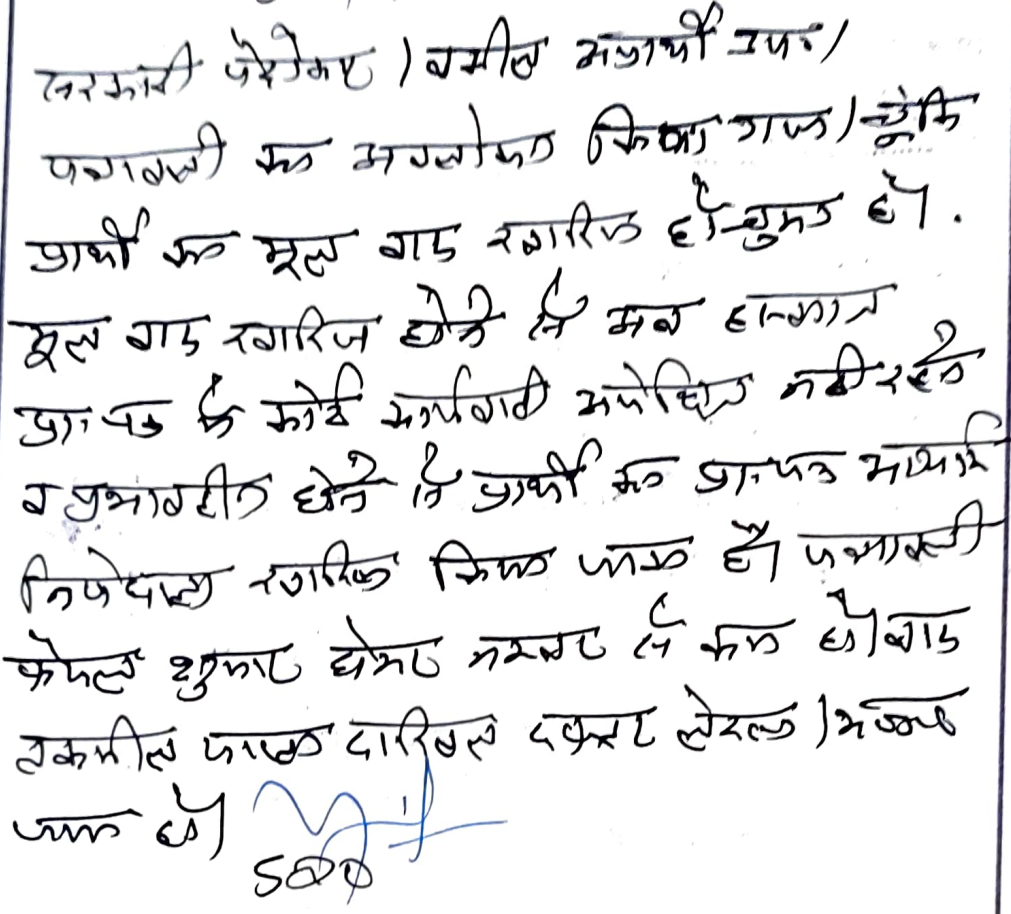 सरकारी पैरोकार / वकील अप्रार्थी उप. /
पत्रावली का अवलोकन किया गया / चूंकि
प्रार्थी का मूल वाद खारिज हो चुका है।
मूल वाद खारिज होने से अब हस्तगत
प्रा. पत्र में कोई कार्यवाही अपेक्षित नहीं रहने
व प्रभावहीन होने से प्रार्थी का प्रा. पत्र अस्थाई
निषेधाज्ञा खारिज किया जाता है। पत्रावली
फैसल शुमार होकर नम्बर से कम हो। बाद
तकमील पत्रावली दाखिल दफ्तर
जावे हो।
SDO